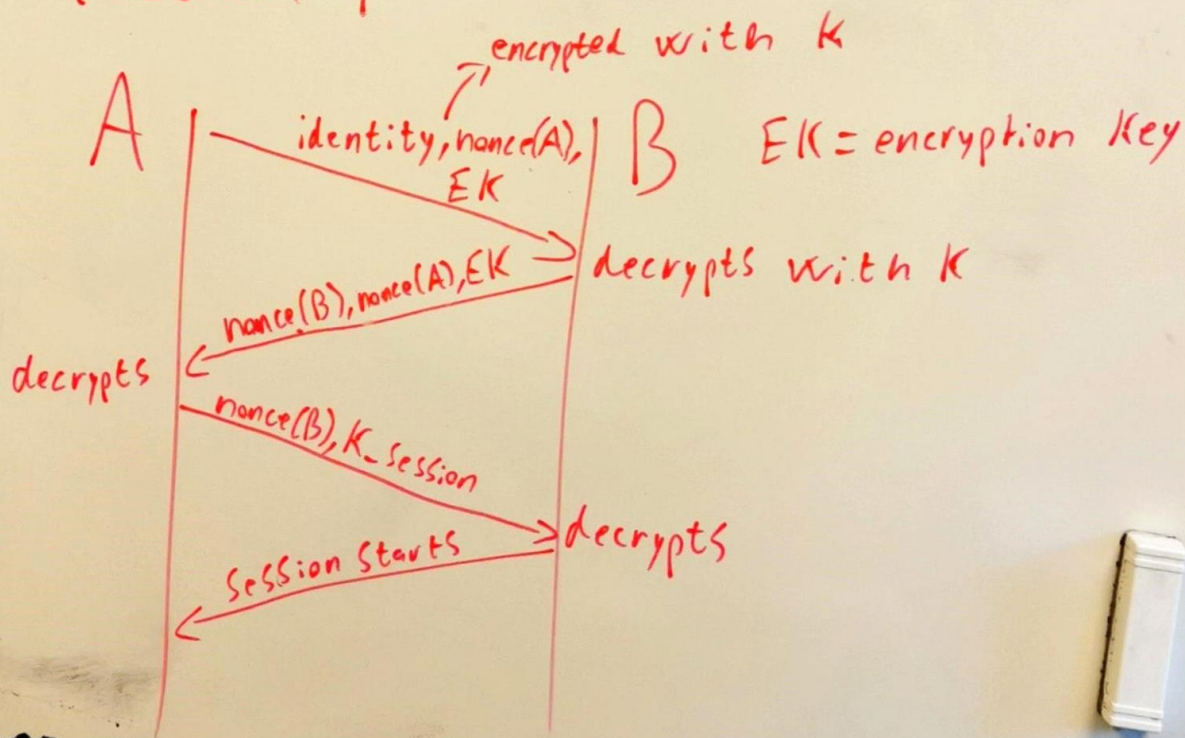 encrypted with K
A
identity, nonce(A),
EK
B
EK = encryption Key
decrypts with K
nonce(B), nonce(A), EK
decrypts
nonce(B), K_session
decrypts
Session Starts